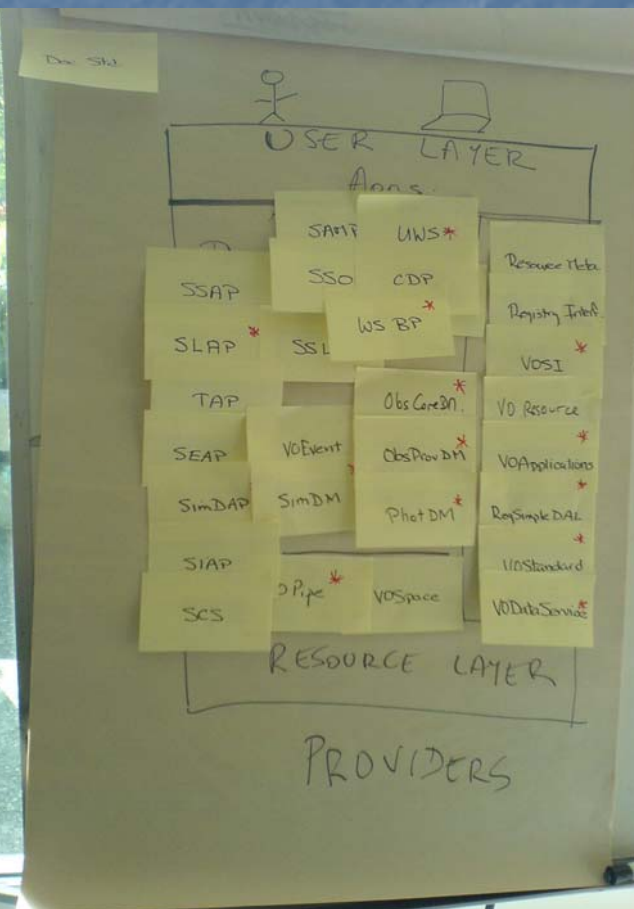 Doc Std.
USER LAYER
Apps.
SAMP
UWS*
SSO
CDP
WS BP*
SSAP
SLAP*
SSL
TAP
SEAP
VOEvent
SimDAP
SimDM
SIAP
SCS
ObsCoreDM.*
ObsProvDM*
PhotDM*
OPipe*
VOSpace
Resource Meta
Registry Interf.
VOSI*
VO Resource
VOApplications*
RegSimpleDAL*
VOStandard*
VODataService*
RESOURCE LAYER
PROVIDERS